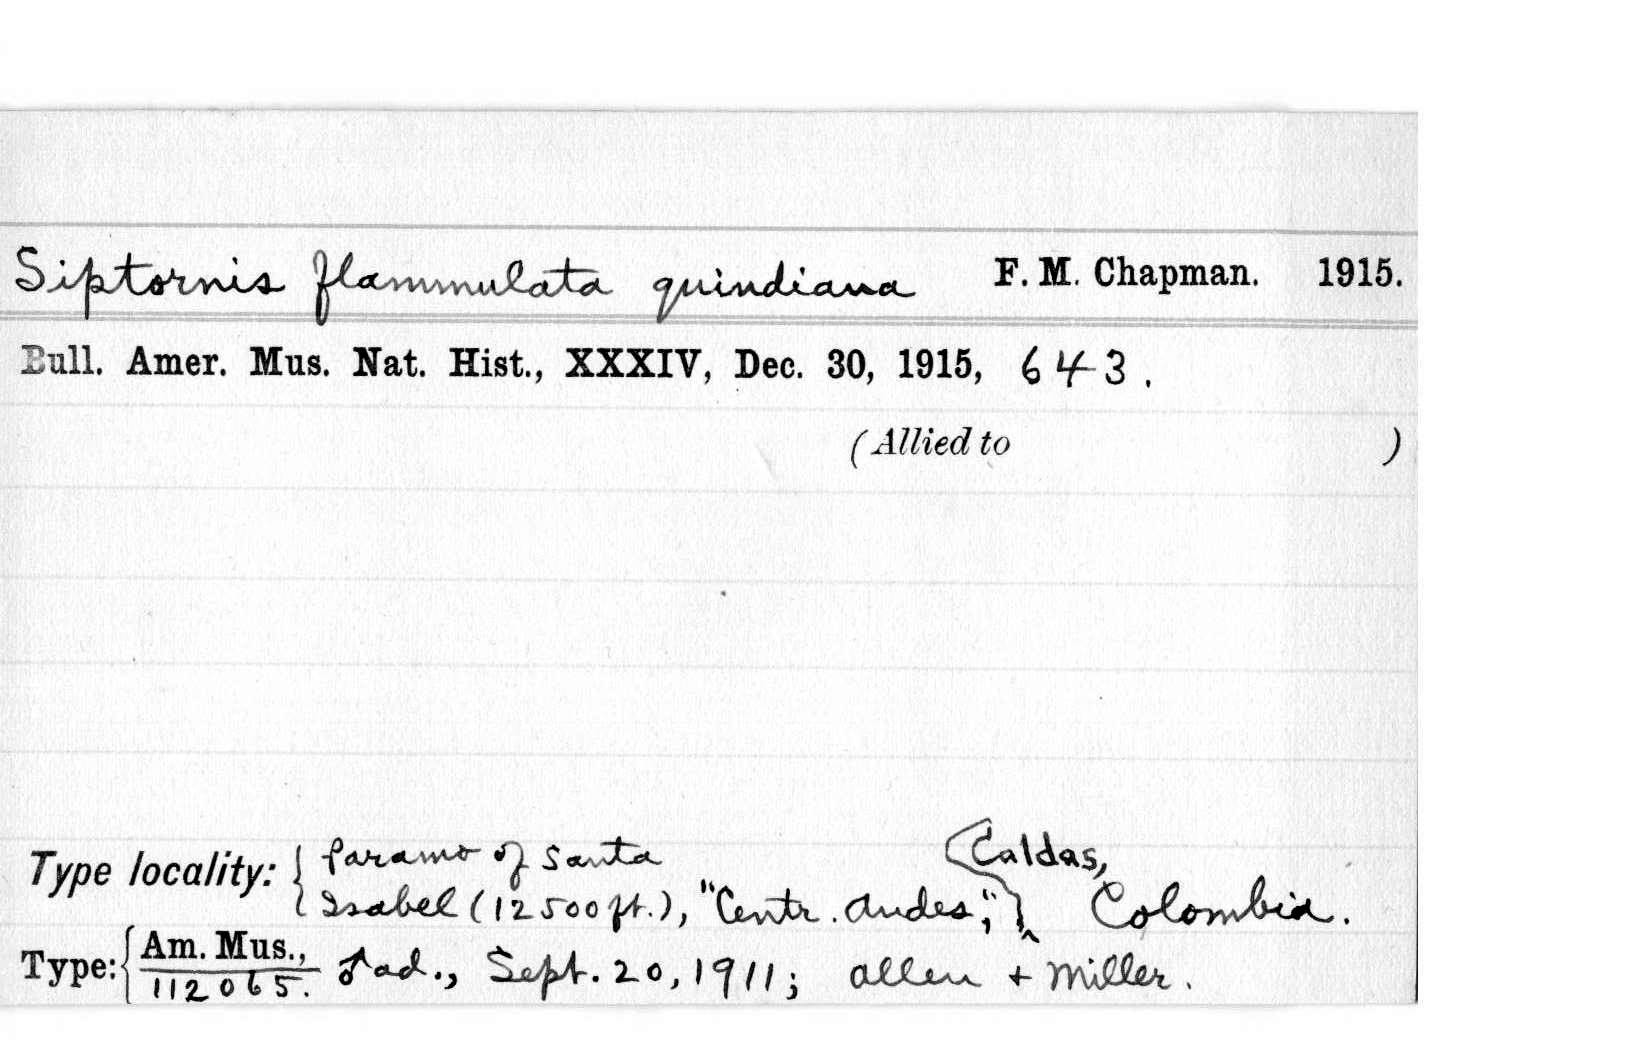 Siptornis flammulata quindiana F. M. Chapman. 1915.
Bull. Amer. Mus. Nat. Hist., XXXIV, Dec. 30, 1915, 643.
(Allied to )
Type locality: { Paramo of Santa
Isabel (12500 ft.), "Centr. Andes;" } Caldas, Colombia.
Type: { Am. Mus., 112065. ♂ ad., Sept. 20, 1911; Allen + Miller.